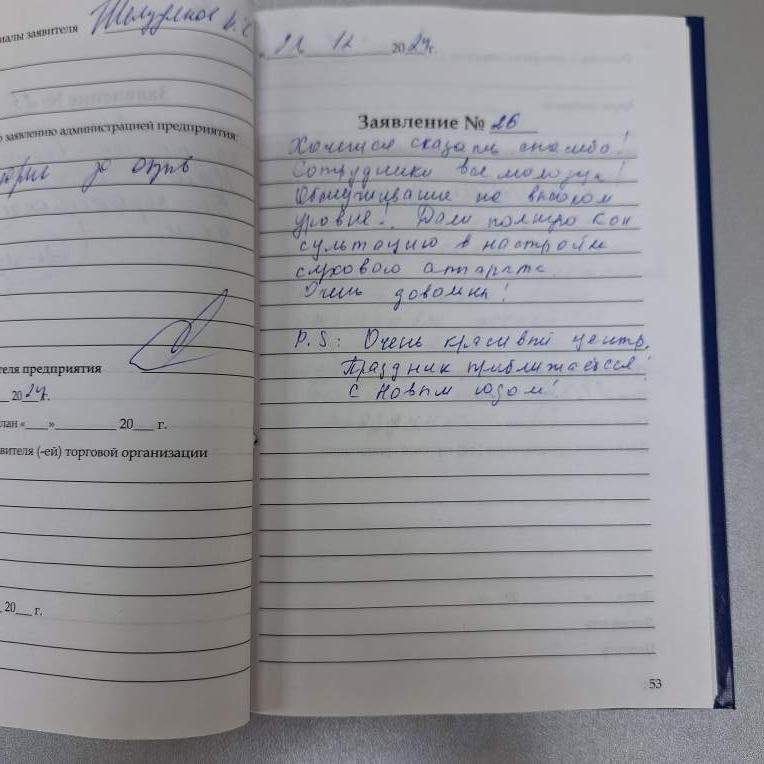 иалы заявителя
о заявлению администрацией предприятия:
за отзыв
теля предприятия
20 24 г.
лан «___»__________ 20___ г.
вителя (-ей) торговой организации
20___ г.
12 2024 г.
Заявление № 26
Хочется сказать спасибо!
Сотрудники все молодцы!
Обслуживание на высоком
уровне! Дали полную кон
сультацию в настройке
слухового аппарата.
Очень довольны!
P.S: Очень красивый центр,
Праздник приближается!
С Новым годом!
53